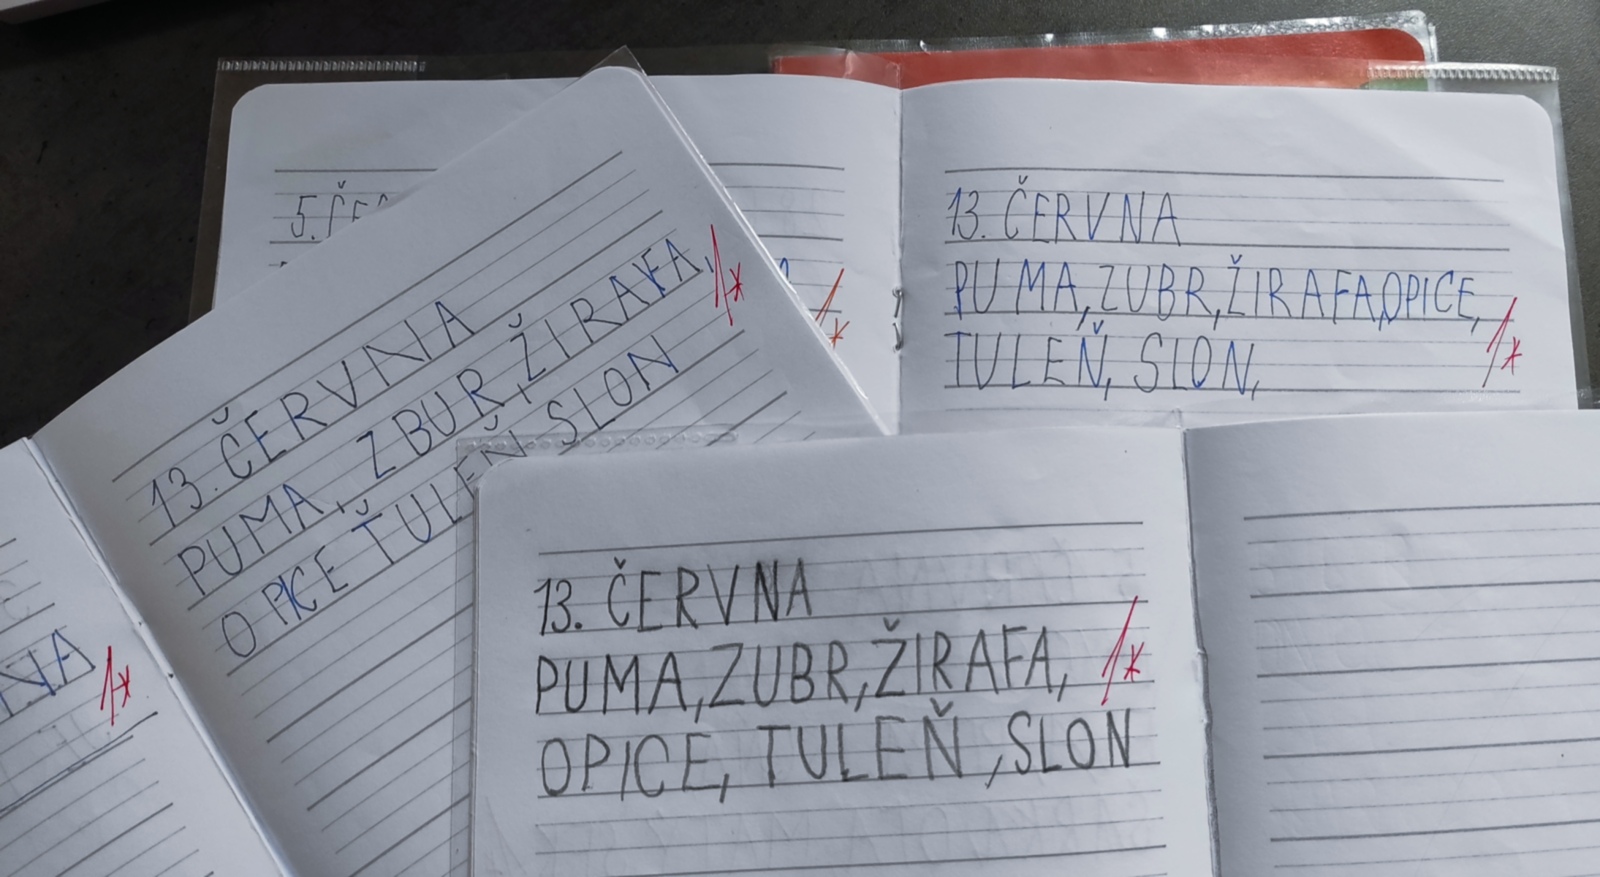 5. ČE
13. ČERVNA
PUMA, ZBUR, ŽIRAFA,
OPICE TULEŇ SLON
1*
13. ČERVNA
PUMA, ZUBR, ŽIRAFA, OPICE,
TULEŇ, SLON,
1*
1*
NA
1*
13. ČERVNA
PUMA, ZUBR, ŽIRAFA,
OPICE, TULEŇ ,SLON
1*